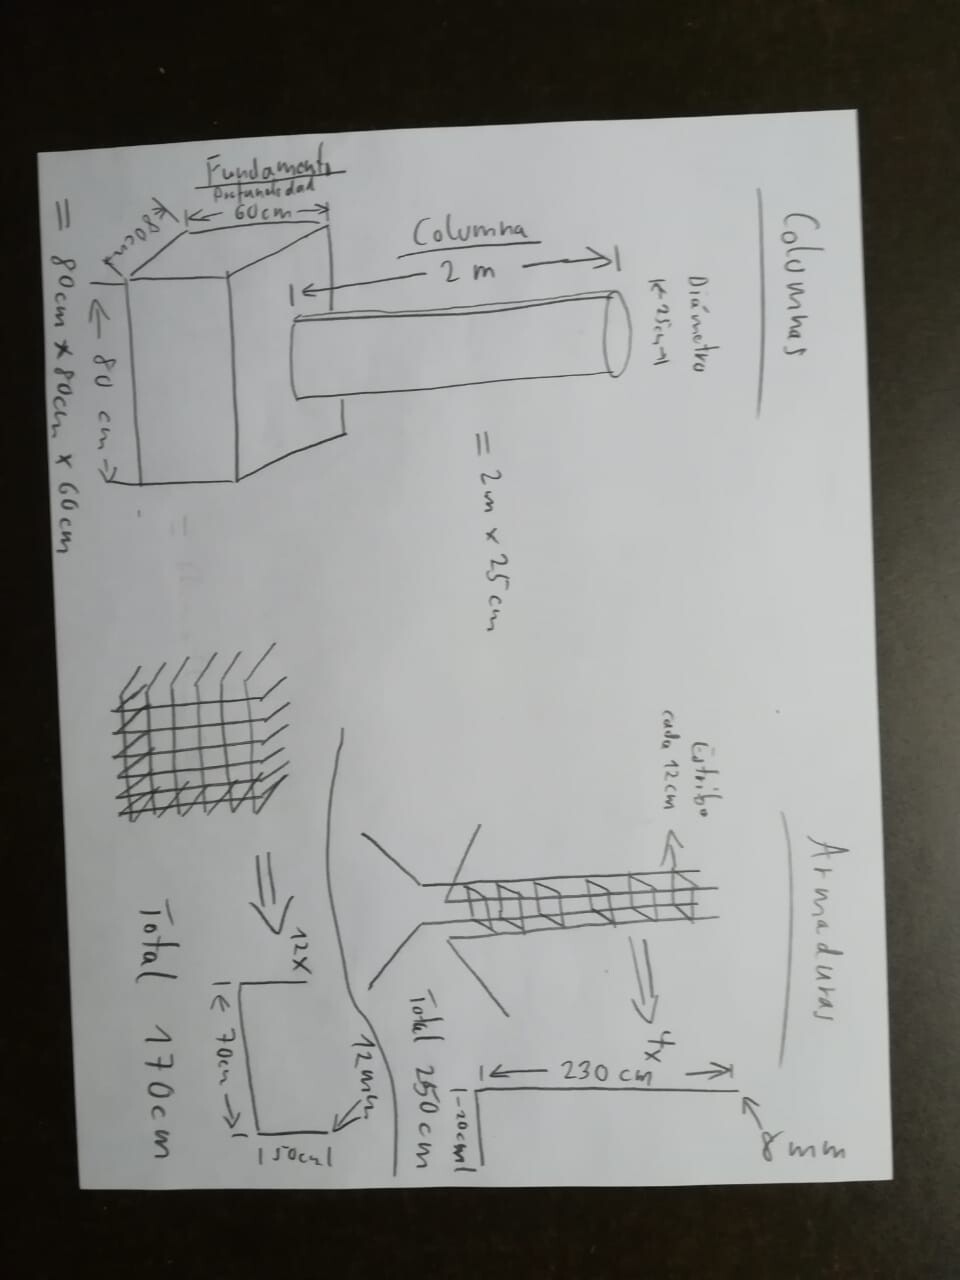 Columnas
Diámetro
25cm
Columna
2 m
= 2m x 25cm
Fundamento
Profundidad
60cm
80cm
80 cm
= 80cm x 80cm x 60cm
Armaduras
Estribo
cada 12cm
4x
8 mm
230 cm
20cm
Total 250cm
12x
12mm
70cm
50cm
Total 170cm